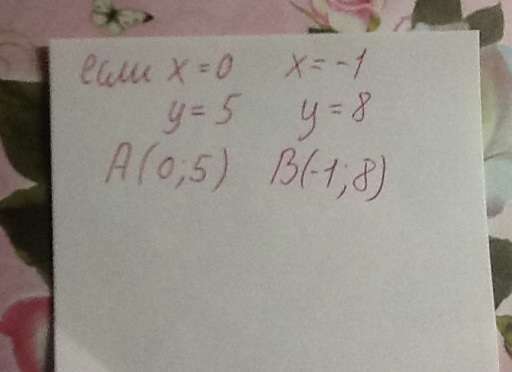 если x = 0 x = -1
y = 5 y = 8
A(0;5) B(-1;8)